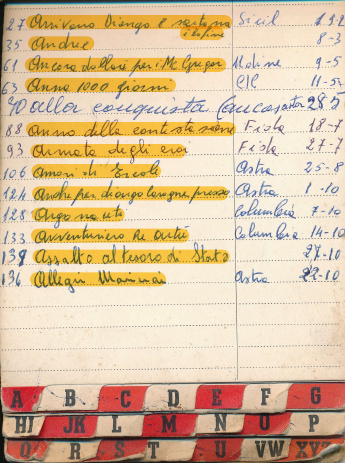 27 Arrivano Django e Sartana Sicil 19-2
è la fine
35 Andrei 8-3
61 Ancora dollari per i Mc Gregor Udine 9-5
63 Anno 1000 giorni CIC 11-5
70 alla conquista 28 5
88 anno della contestazione Fida 18-7
93 Armata degli eroi Fida 27-7
106 Amori di Ercole Astra 25-8
124 Anche per django carogne Astra 1-10
128 Argonauti Columbia 7-10
133 Avventuriero Re Columbia 14-10
139 Assalto al tesoro di Stato 27-10
136 Allegri Marinai Astra 22-10
A B C D E F G
HI JK L M N O P
Q R S T U VW XYZ